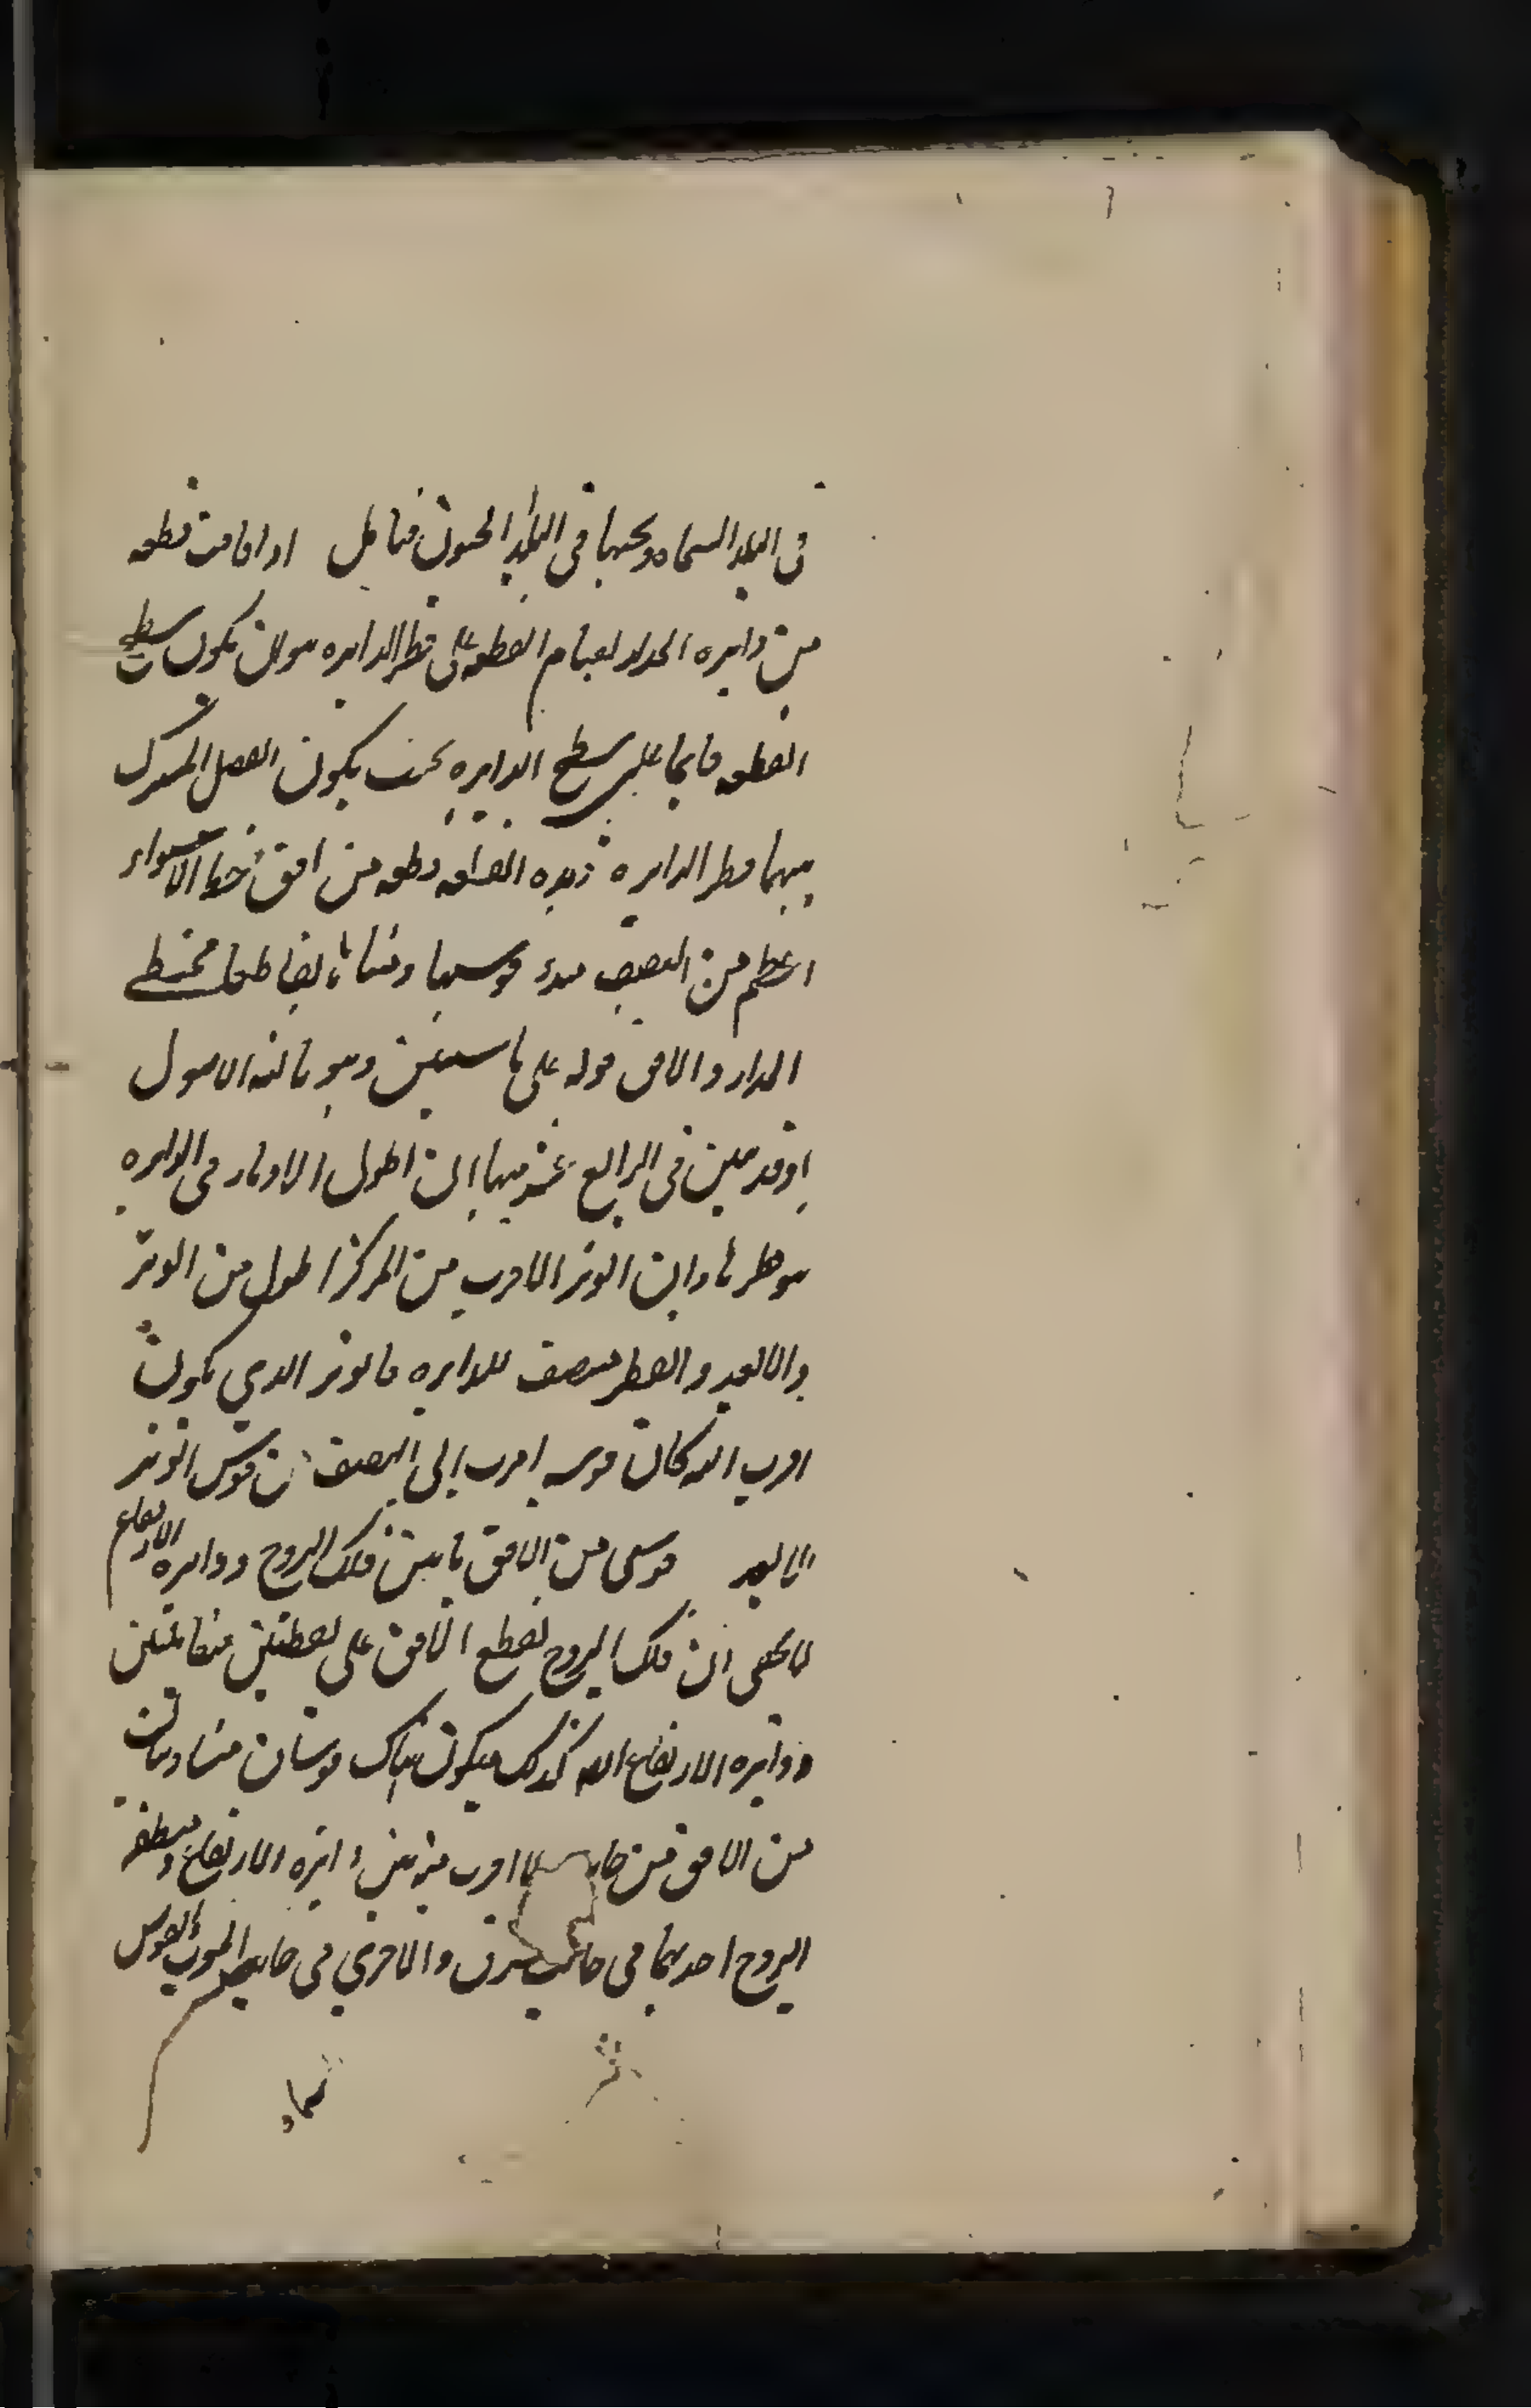 فى البلد الشماله وتحتها فى البلد الجنوبى فتامل اذا قامت قطعه
من دايره المراد بقيام القطعه على قطر الدايره هو ان يكون سطح
القطعه قايما على سطح الدايره بحيث يكون الفصل المشترك
بينهما قطر الدايره فهذه القطعه قطعه من افق خط الاستواء
اعظم من النصف مبدء قوسها ومنتهاها تقاطعا محيطى
المدار والافق قوله على ما سيتبين وهو ثالثه الاصول
وقد تبين فى الرابع عشر منها ان اطول الاوتار فى الدايره
هو قطرها وان الوتر الاقرب من المركز اطول من الوتر
والابعد والقطر منصف للدايره فالوتر الذي يكون
اقرب اليه كان قوسه اقرب الى النصف من قوس الوتر
الابعد قوسى من الافق ما بين فلك البروج ودايره الارتفاع
لا يخفى ان فلك البروج تقطع الافق على نقطتين متقابلتين
ودايره الارتفاع ايضا كذلك فيكون هناك قوسان متساويتان
من الافق من اقرب من بين دايره الارتفاع ومنطقه
البروج احديهما فى جانب الشرق والاخري فى جانب الغرب والقوس